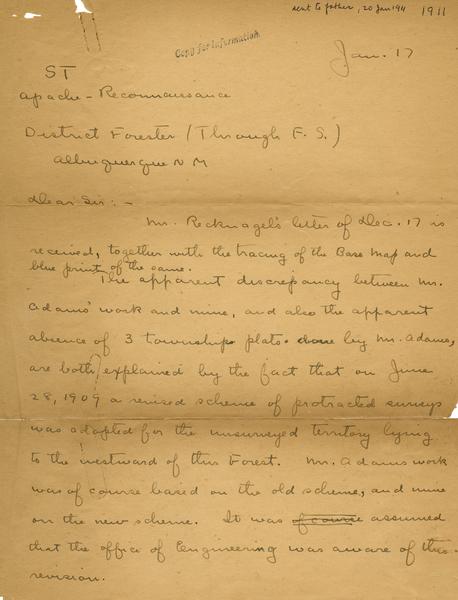 sent to father, 20 Jan 1911
1911
Copy for Information
Jan. 17
ST
Apache - Reconnaissance
District Forester (Through F. S.)
Albuquerque N M
Dear Sir: -
Mr. Recknagel's letter of Dec. 17 is
received, together with the tracing of the Base Map and
blue print of the same.
The apparent discrepancy between Mr.
Adams' work and mine, and also the apparent
absence of 3 township plats done by Mr. Adams,
are both explained by the fact that on June
28, 1909 a revised scheme of protracted surveys
was adopted for the unsurveyed territory lying
to the westward of this Forest. Mr. Adams work
was of course based on the old scheme, and mine
on the new scheme. It was of course assumed
that the office of Engineering was aware of this
revision.